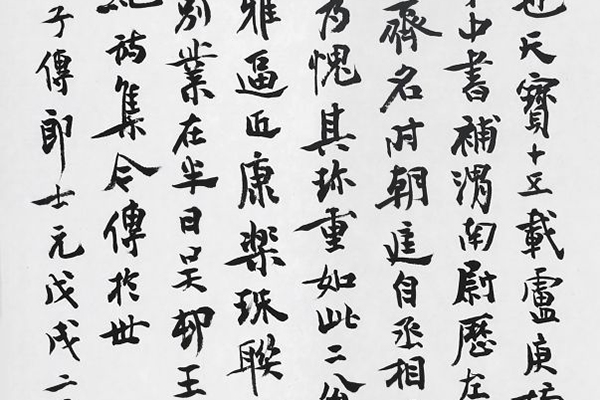 也天寶十五載盧庚榜
中書補渭南尉歷左
齊名时朝廷自丞相
為愧其珎重如此二公
雅逼近康樂珠聯
別業在半日吴邨王
詩集今傳於世
子傳郎士元戊戌二